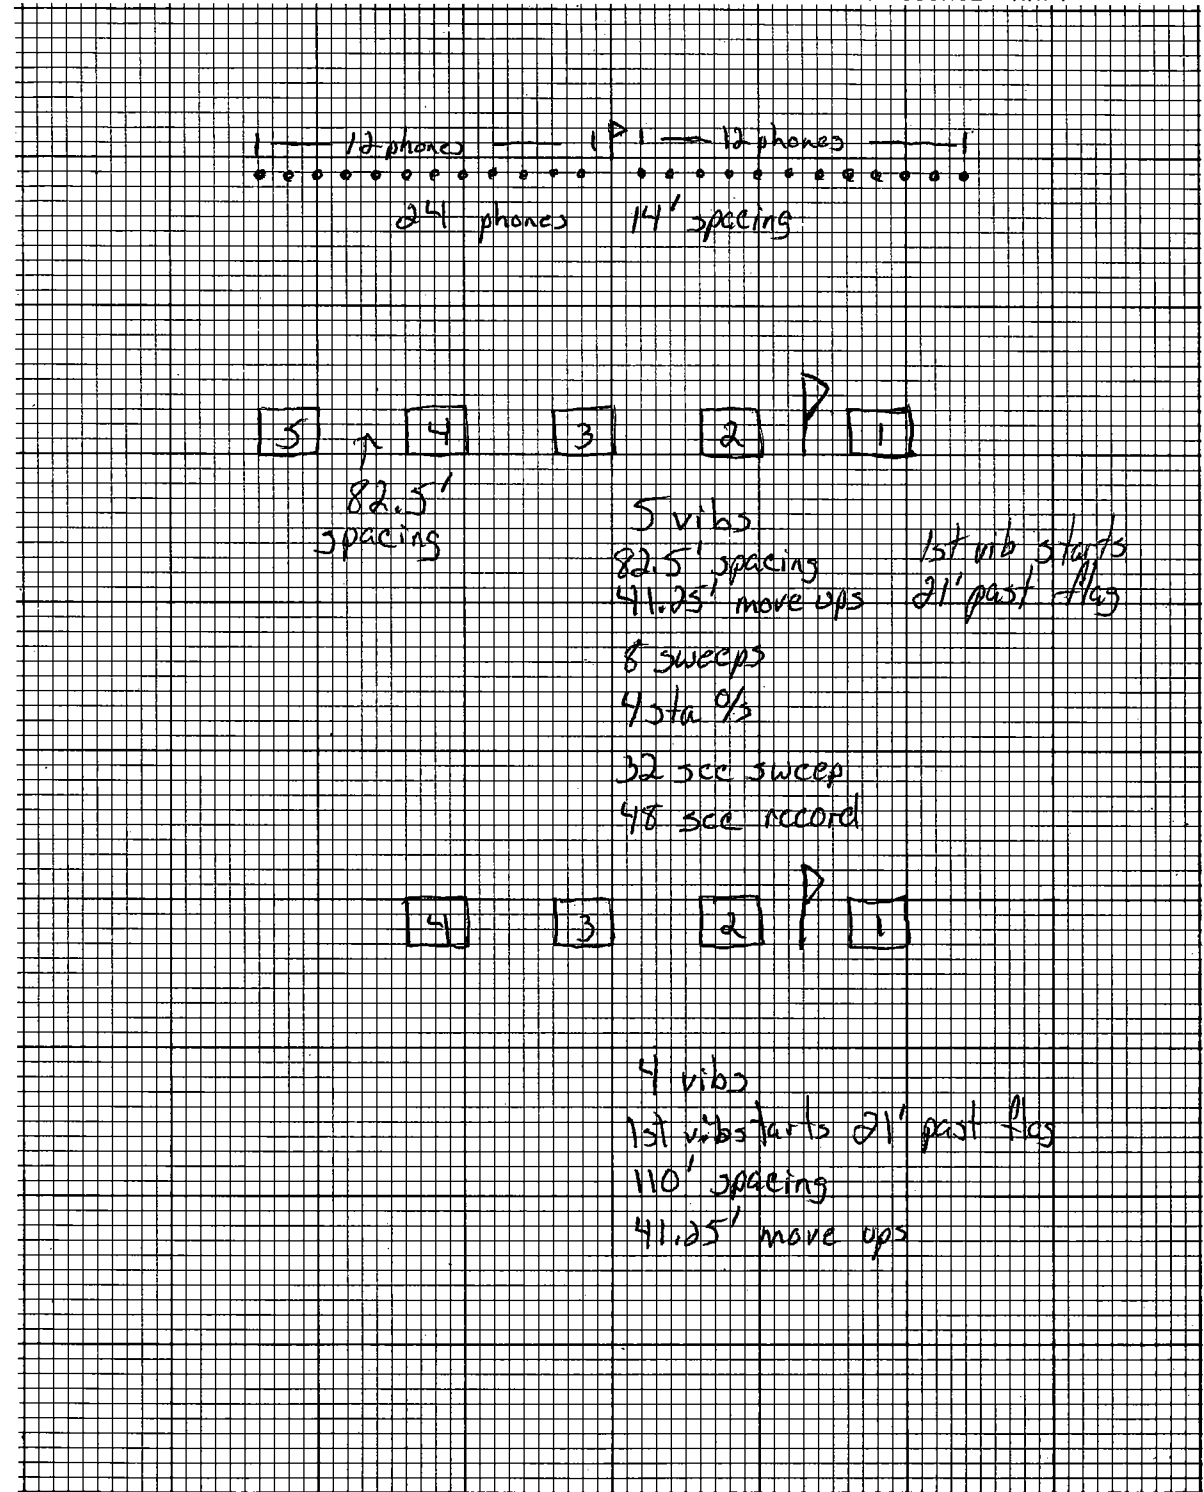 12 phones 12 phones
24 phones 14' spacing
5 4 3 2 1
82.5'
spacing
5 vibs
82.5' spacing
41.25' move ups
1st vib starts
21' past flag
8 sweeps
4 sta %s
32 sec sweep
48 sec record
4 3 2 1
4 vibs
1st vib starts 21' past flag
110' spacing
41.25' move ups